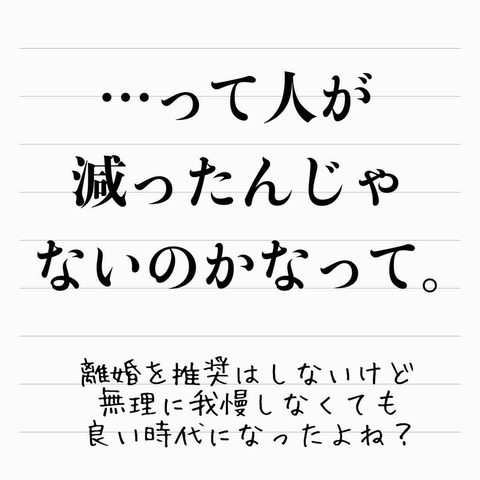 …って人が
減ったんじゃ
ないのかなって。
離婚を推奨はしないけど
無理に我慢しなくても
良い時代になったよね？